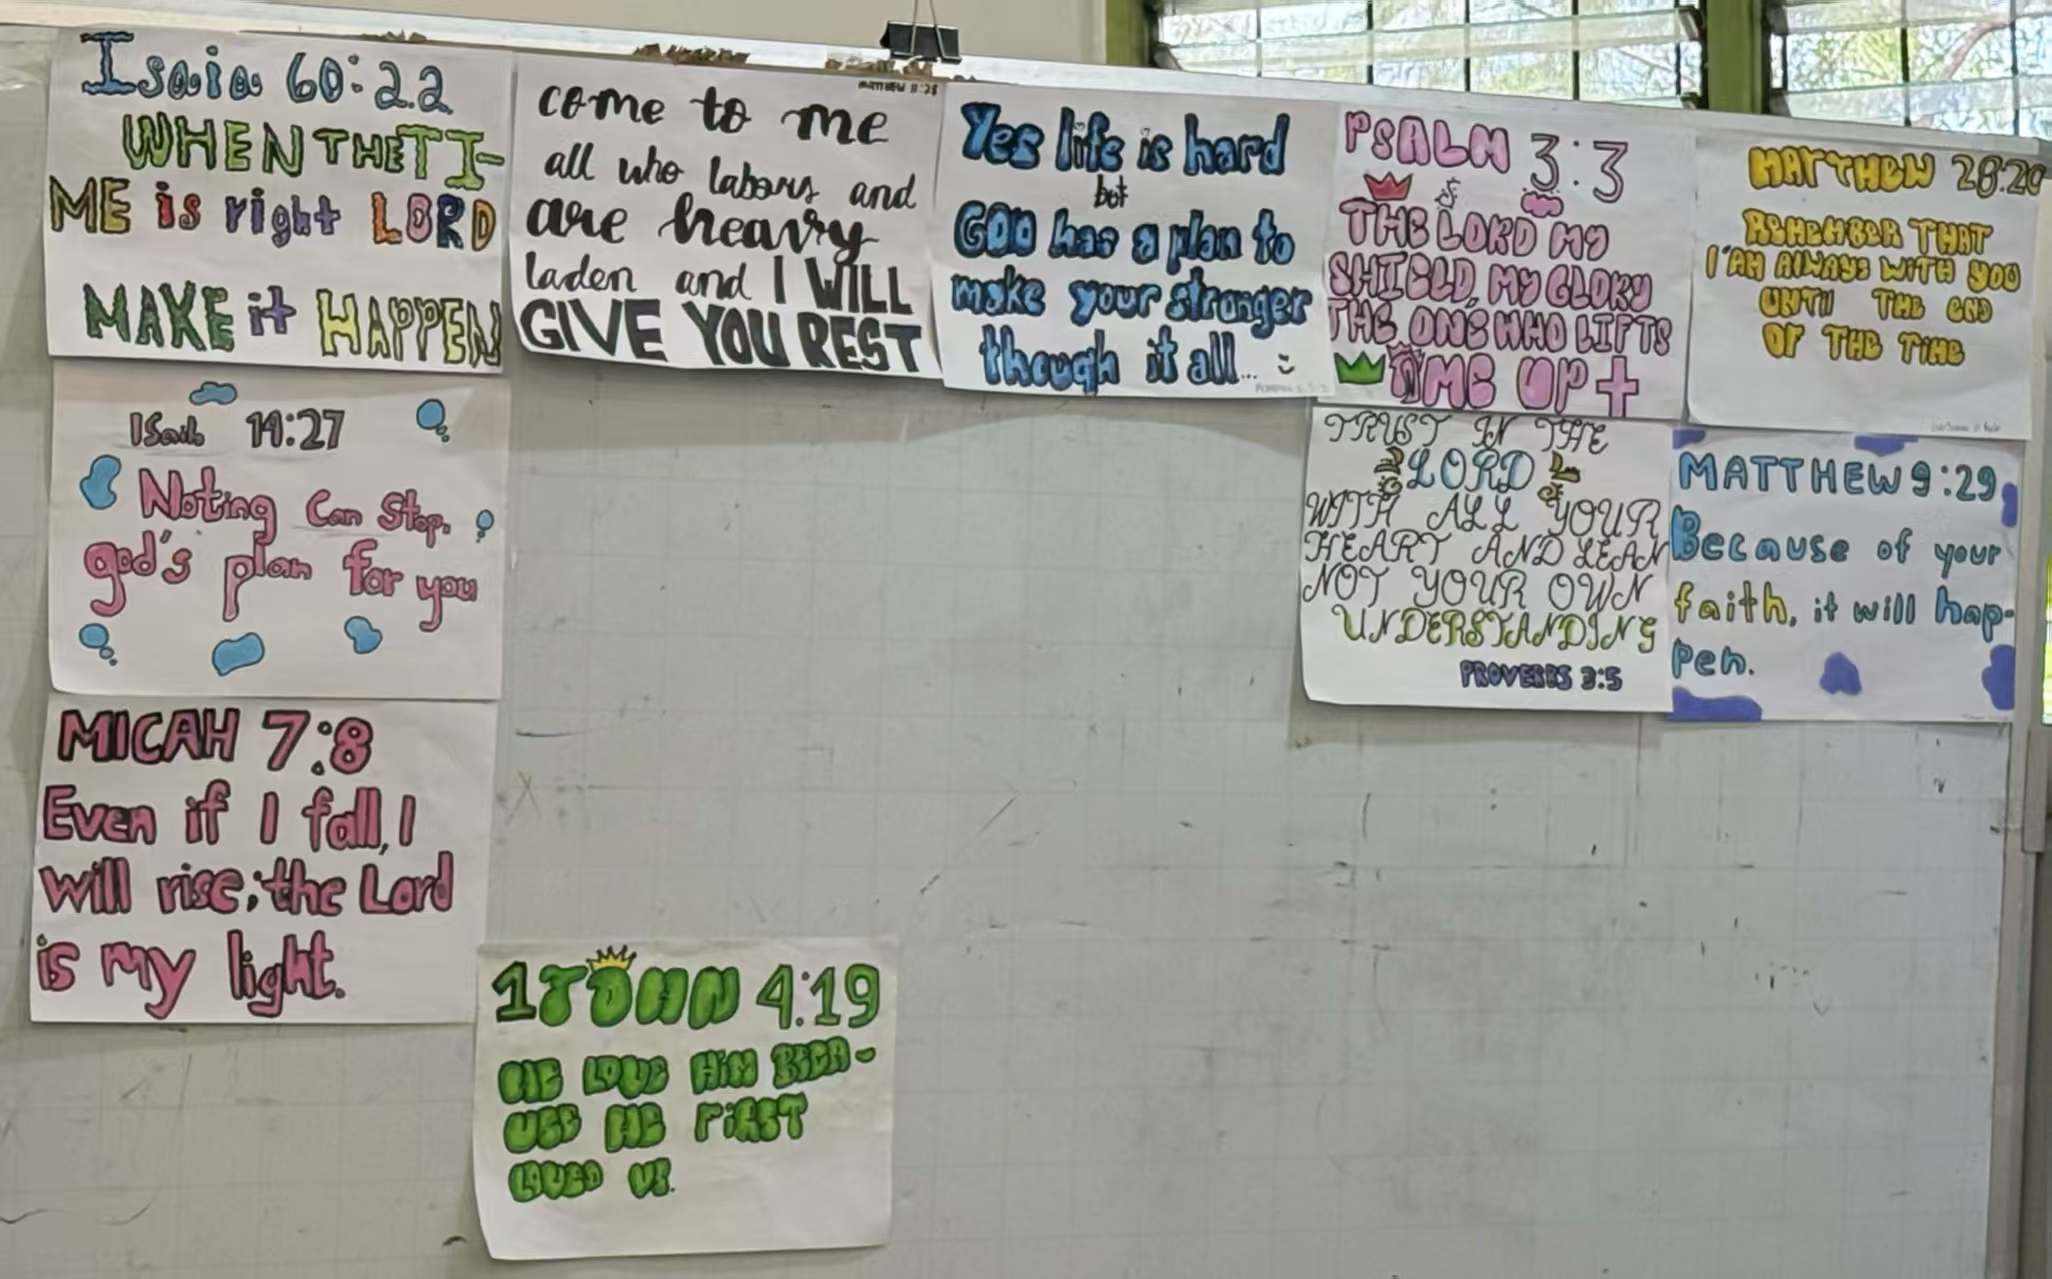 Isaia 60:22
WHEN THE TI-
ME is right LORD
MAKE it HAPPEN
MATTHEW 11:28
come to me
all who labours and
are heavy
laden and I WILL
GIVE YOU REST
Yes life is hard
but
GOD has a plan to
make your stronger
though it all...
PSALM 3:3
THE LORD MY
SHIELD, MY GLORY
THE ONE WHO LIFTS
ME UP
MATTHEW 28:20
REMEMBER THAT
I'AM ALWAYS WITH YOU
UNTIL THE END
OF THE TIME
14:27
Noting Can Stop.
god's plan for you
TRUST IN THE
LORD
WITH ALL YOUR
HEART AND LEAN
NOT YOUR OWN
UNDERSTANDING
PROVERBS 3:5
MATTHEW 9:29
Because of your
faith, it will hap-
pen.
MICAH 7:8
Even if I fall, I
will rise; the Lord
is my light.
1 JOHN 4:19
WE LOVE HIM BECA-
USE HE FIRST
LOVED US.